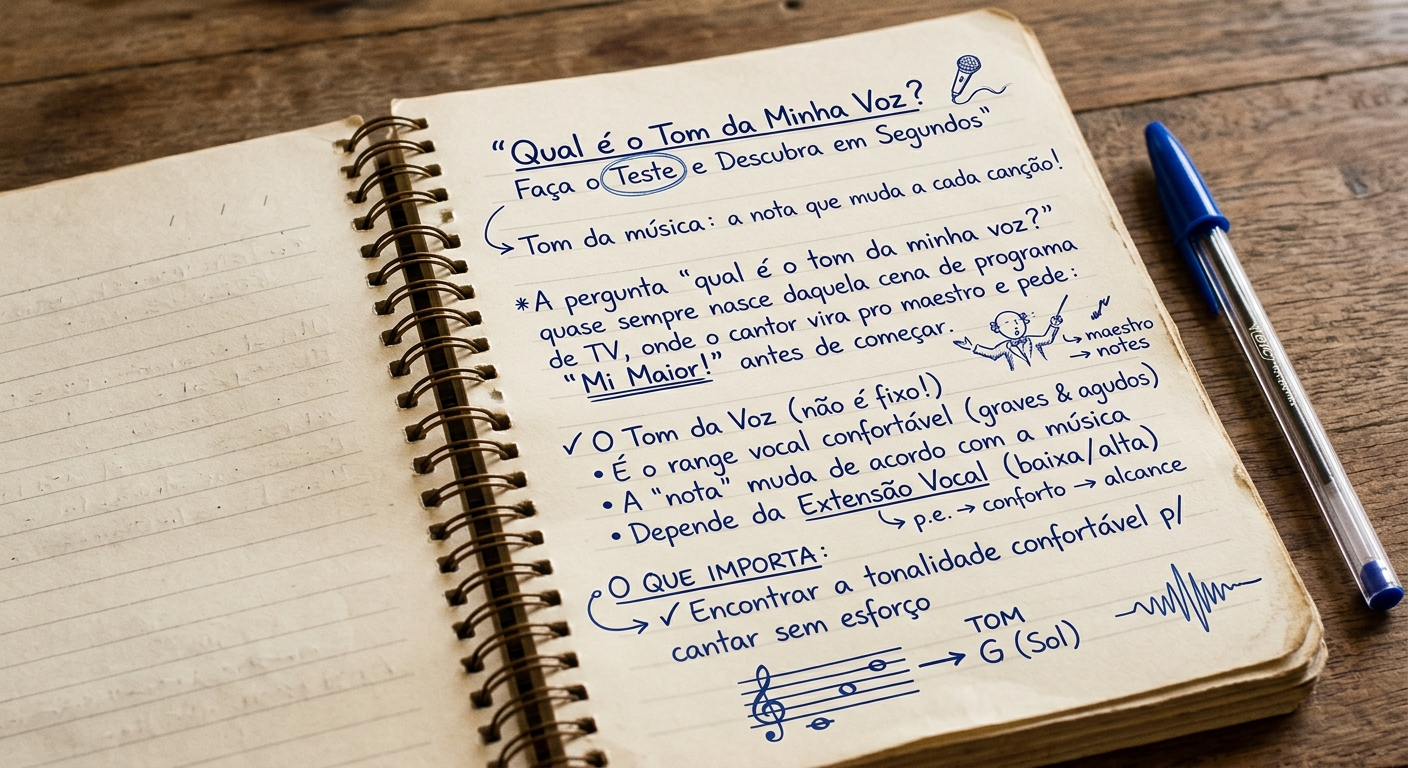 "Qual é o Tom da Minha Voz?
Faça o Teste e Descubra em Segundos"
Tom da música: a nota que muda a cada canção!
*A pergunta "qual é o tom da minha voz?"
quase sempre nasce daquela cena de programa
de TV, onde o cantor vira pro maestro e pede:
"Mi Maior!" antes de começar.
↳ maestro
→ notes
✓ O Tom da Voz (não é fixo!)
• É o range vocal confortável (graves & agudos)
• A "nota" muda de acordo com a música
• Depende da Extensão Vocal (baixa/alta)
↳ p.e. → conforto → alcance
O QUE IMPORTA:
✓ Encontrar a tonalidade confortável p/
cantar sem esforço
TOM
→ G (Sol)